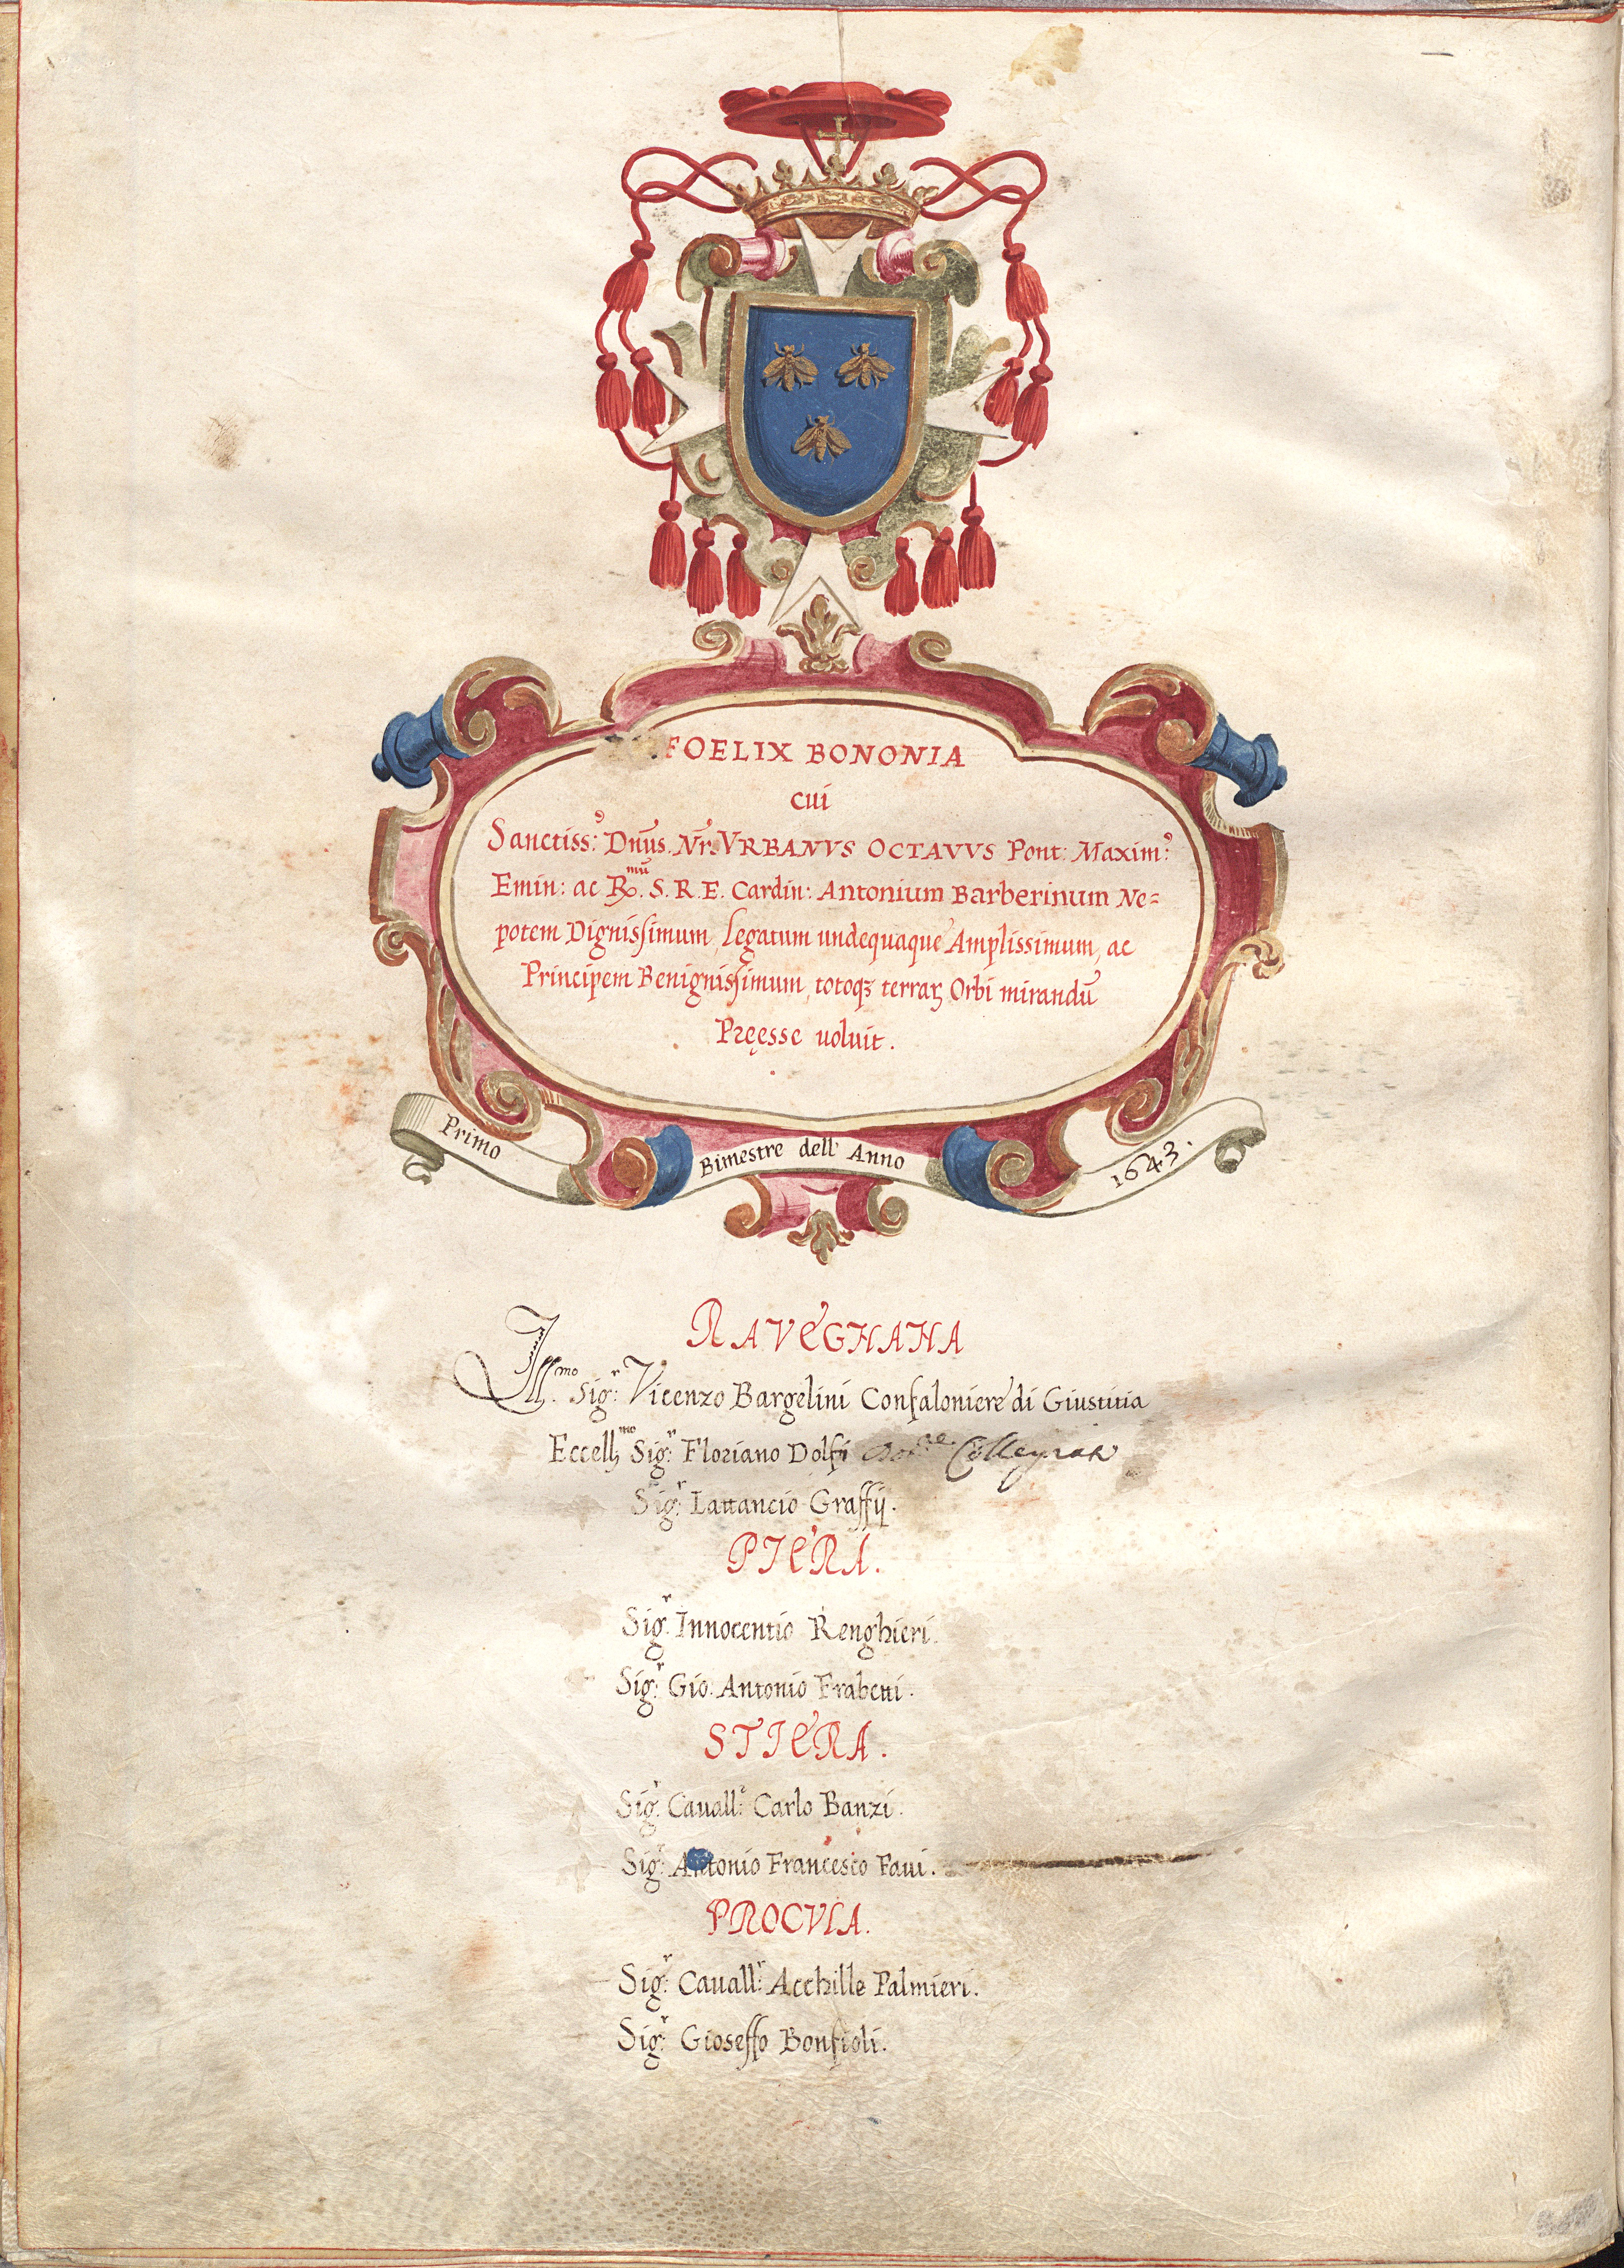 FOELIX BONONIA
cui
Sanctiss:⁹ Dn̄us. Nr̄. VRBANVS OCTAVVS Pont: Maxim:⁹
Emin: ac R.mū S. R. E. Cardin: Antonium Barberinum Ne=
potem Dignissimum, Legatum undequaque Amplissimum, ac
Principem Benignissimum, totoqꝫ terraꝝ Orbi mirandū
Pręesse uoluit.
Primo Bimestre dell' Anno 1643.
RAVEGNANA
Ill.mo Sig:r Vicenzo Bargelini Confaloniere di Giustitia
Eccell.mo Sig:r Floriano Dolfi
Sig:r Lattancio Graffij.
PIERA.
Sig:r Innocentio Renghieri.
Sig:r Gio: Antonio Frabetti.
STIERA.
Sig:r Cauall:r Carlo Banzi.
Sig:r Antonio Francesco Faui.
PROCVLA.
Sig:r Cauall:r Acchille Palmieri.
Sig:r Gioseffo Bonfioli.